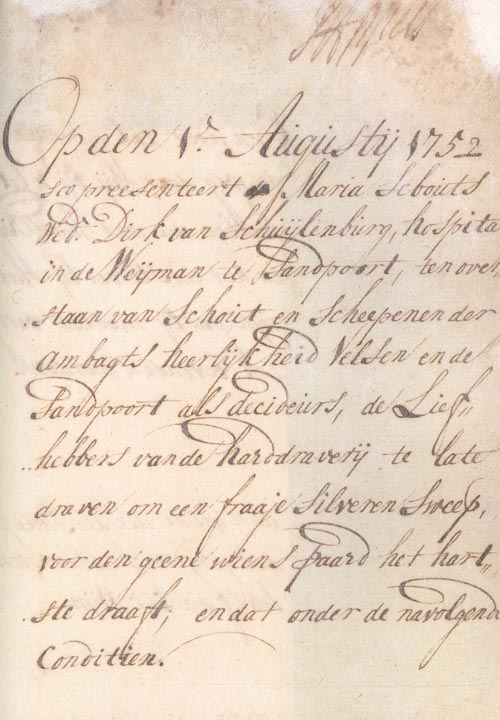 Op den 1e. Augustij 1752
soo preesenteert Maria Sebouts
Wedr. Dirk van Schuijlenburg, hospita
in de Weijman te Sandpoort, ten over
staan van Schout en Scheepenen der
Ambagts heerlijkheid Velsen en de
Sandpoort als decideurs, de Lief„
hebbers van de harddraverij te late
draven om een fraaje Silveren Sweep,
voor den geene wiens paard het hart„
ste draaft, en dat onder de navolgende
Conditien.